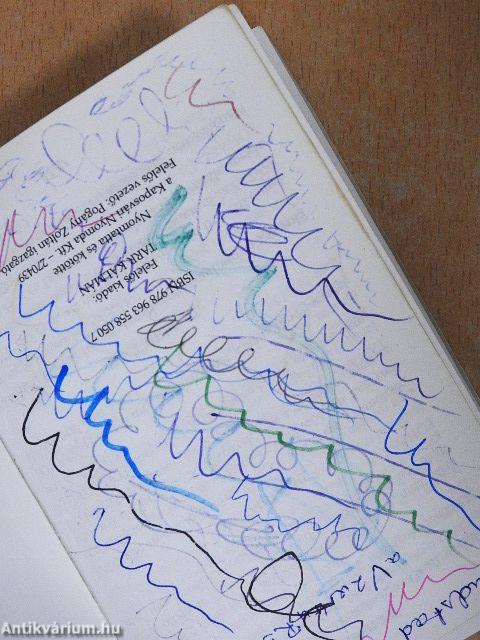 ISBN 978 963 558 050 7
Felelős kiadó:
TARR KÁLMÁN
Nyomtatta és kötötte
a Kaposvári Nyomda Kft. – 270439
Felelős vezető: Pogány Zoltán igazgató
Antikvárium.hu